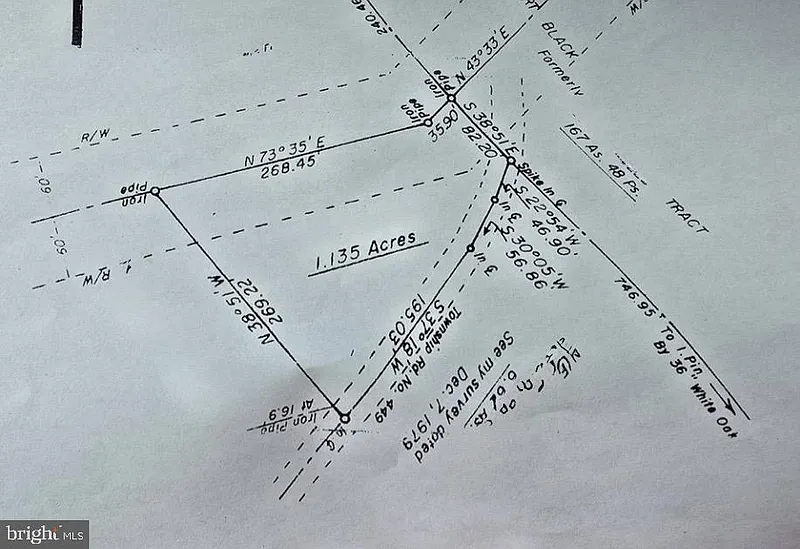 240.46
N 43° 33' E
BLACK
Formerly
167 As. 48 Ps.
TRACT
R/W
60'
50'
R/W
Iron
Pipe
N 73° 35' E
268.45'
Iron
Pipe
35.90'
Iron
Pipe
S 38° 51' E
82.20
Spike in ¢
S 22° 54' W.
46.90'
in ¢
S 30° 05' W.
56.86
in ¢
1.135 Acres
N 38° 51' W
269.22
195.03'
S 37° 18' W
Township Rd. No. 449
See my survey dated
Dec. 7, 1979
746.95' To I. Pin,
By 36" White Oak
Iron Pipe
At 16.9
in ¢
bright MLS